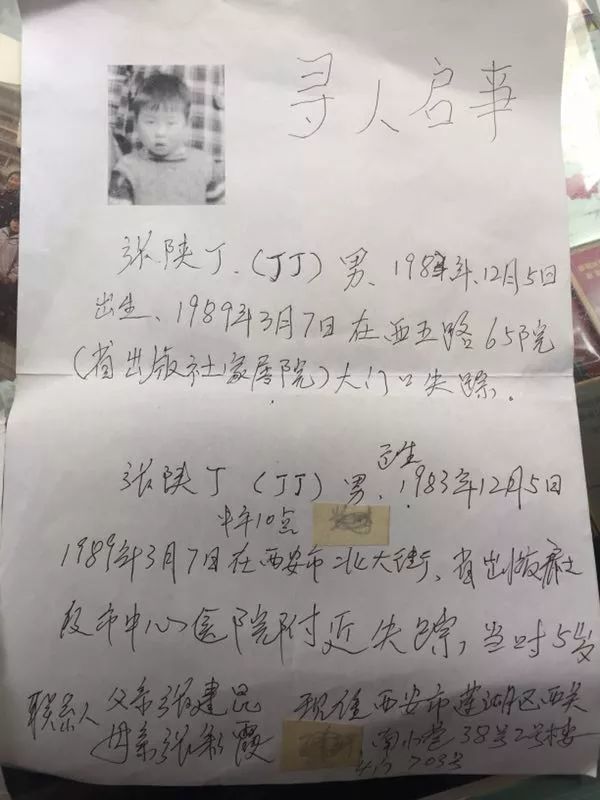 寻人启事
张陕丁、(丁丁) 男、198年、12月5日
出生、1989年3月7日在西五路65院
(省出版社家属院)大门口失踪.
出生
张陕丁 (丁丁) 男、1983年12月5日
中午10点
1989年3月7日在西安市北大街、省出版社
及市中心医院附近失踪, 当时5岁
联系人 父亲张建昆 现住西安市莲湖区西关
母亲张彩霞 南小巷38号2号楼
4门 703号